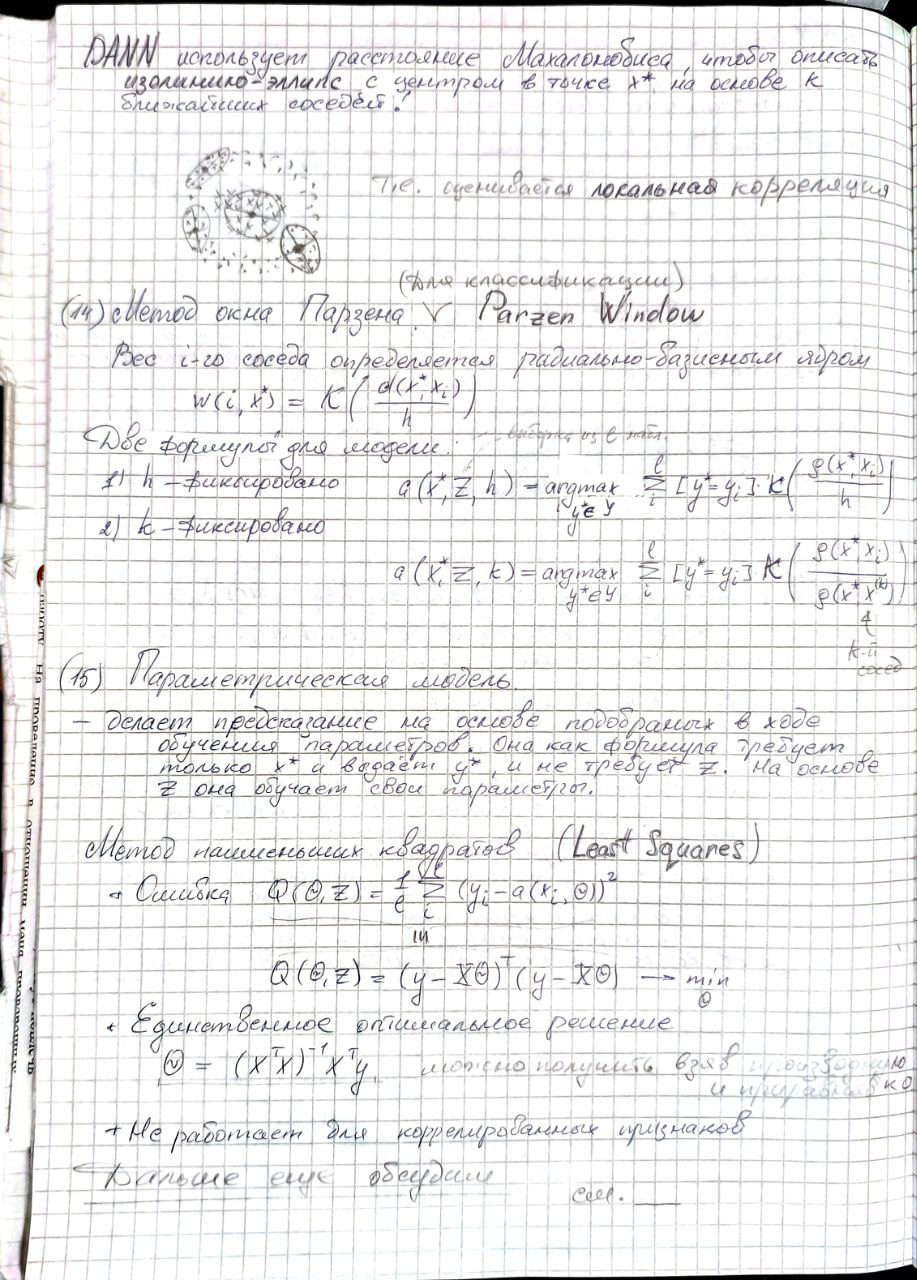 DANN использует расстояние Махалонобиса, чтобы описать
изолинию-эллипс с центром в точке x* на основе k
ближайших соседей!
Т.е. оценивается локальная корреляция
(Для классификации)
(14) Метод окна Парзена. V Parzen Window
Вес i-го соседа определяется радиально-базисным ядром
w(i, x*) = K( d(x*, xᵢ) / h )
Две формулы для модели: выборка из ℓ набл.
1) h – фиксировано a(x*, Z, h) = argmax_{y*∈Y} Σᵢ^ℓ [y* = yᵢ]· K( ρ(x*, xᵢ) / h )
2) k – фиксировано
a(x*, Z, k) = argmax_{y*∈Y} Σᵢ^ℓ [y* = yᵢ] K( ρ(x*, xᵢ) / ρ(x*, x⁽ᵏ⁾) )
k-й
сосед
(15) Параметрическая модель.
— делает предсказание на основе подобраных в ходе
обучения параметров. Она как формула требует
только x* и выдаёт y*, и не требует Z. На основе
Z она обучает свои параметры.
Метод наименьших квадратов (Least Squares)
• Ошибка Q(Θ, Z) = 1/ℓ Σᵢ^ℓ (yᵢ – a(xᵢ, Θ))²
Q(Θ, Z) = (y – XΘ)ᵀ (y – XΘ) → min_Θ
• Единственное оптимальное решение
Θ = (XᵀX)⁻¹Xᵀy. можно получить взяв производную
и приравняв к 0
+ Не работает для коррелированных признаков
Дальше еще обсудим
см. ___